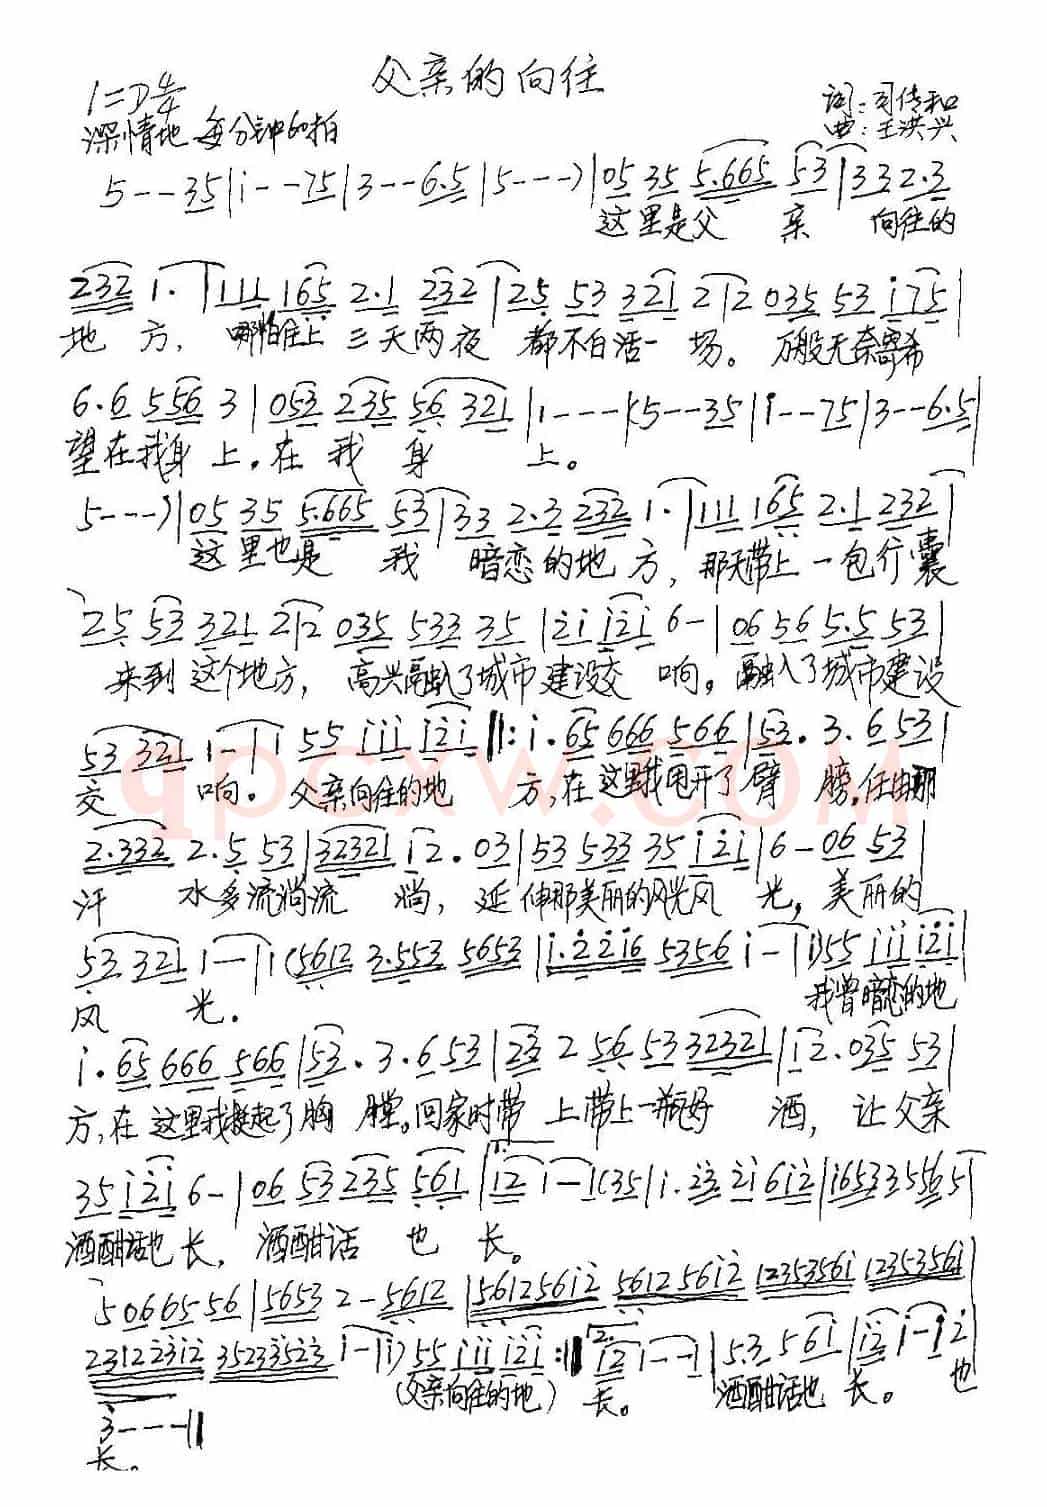 父亲的向往
1=D 4/4
词:司传和
深情地 每分钟60拍
曲:王洪兴
5---35|i--75|3---6.5|5---)|05 35 5.665 53|332.3
这里是父 亲 向往的
232 1.|111 165 2.1 232|25 53 321 2|2 035 53 i75|
地 方, 哪怕住上 三天两夜 都不白活一 场。 万般无奈寄希
6.6 556 3|053 235 56 321|1----|(5--35|i--75|3--6.5|
望在我身 上,在 我 身 上。
5---)|05 35 5.665 53|33 2.3 232 1.|111 165 2.1 232|
这里也是 我 暗恋的地 方, 那天带上 一包行囊
25 53 321 2|2 035 533 35|2i i2i 6-|06 56 5.5 53|
来到 这个地方, 高兴融入了城市建设交 响。 融入了城市建设
53 321 1-|1 55 iii i2i‖:i.65 666 566|53.3.6 53|
交 响. 父亲向往的地 方,在 这里我甩开了臂 膀,任由那
2.332 2.5 53|32321 i2.03|53 533 35 i2i|6-06 53|
汗 水多流淌流 淌, 延伸那美丽的风光风 光, 美丽的
53 321 1-|1(5612 3.553 5653|i.22i6 5356 i-|i)55 iii i2i|
风 光. 我曾暗恋的地
i.65 666 566|53.3.6 53|23 2 56 53 32321|i2.035 53|
方,在 这里我挺起了胸 膛。回家时带 上带上一瓶好 酒, 让父亲
35 i2i 6-|06 53 235 561|1.i2 i-|(35|i.23 2i 6i2|i6533556 5|
酒酣话也 长, 酒酣话 也 长。
5 066556|5653 2-5612|56125612 56125612 12353561 12353561|
23122312 35233523 i-|i)55 iii i2i:‖2.i2 i---|5.3 56i|i2 i-i2
(父亲向往的地) 长。 酒酣话也 长。 也
3----‖
长。
qpcxw.com